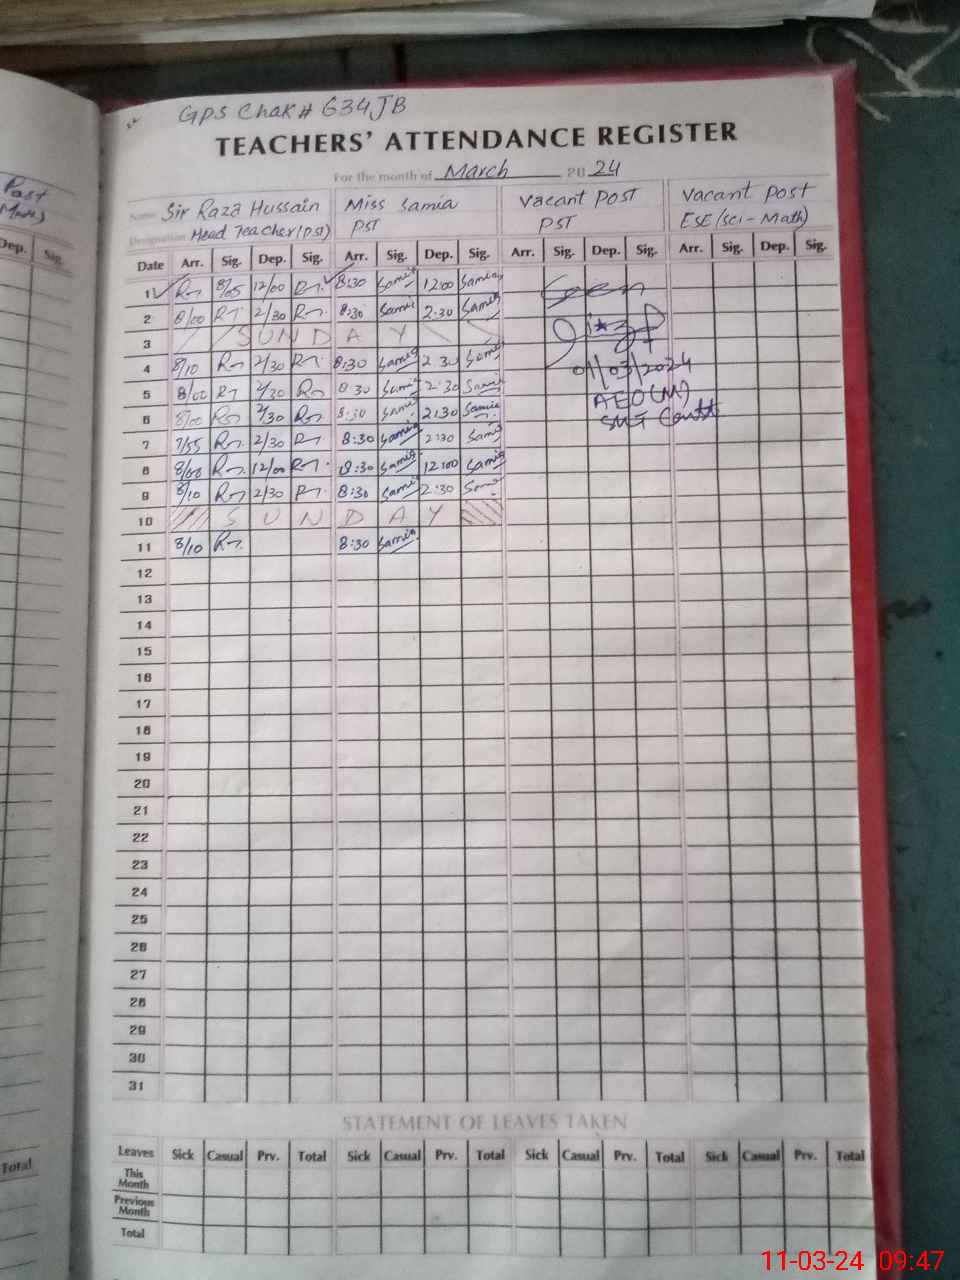 GPS Chak # 634JB
TEACHERS' ATTENDANCE REGISTER
For the month of March 2024
Name Sir Raza Hussain Miss Samia Vacant Post Vacant Post
Designation Head Teacher (PST) PST PST ESE (Sci-Math)
Date Arr. Sig. Dep. Sig. Arr. Sig. Dep. Sig. Arr. Sig. Dep. Sig. Arr. Sig. Dep. Sig.
1 8/05 12/00 8:30 Samia 12:00 Samia Seen
2 8/00 2/30 8:30 Samia 2:30 Samia
3 SUNDAY
4 8/10 2/30 8:30 Samia 2:30 Samia 01/03/2024
5 8/00 2/30 8:30 Samia 2:30 Samia AEO(M)
6 8/00 2/30 8:30 Samia 2:30 Samia
7 7/55 2/30 8:30 Samia 2:30 Samia
8 8/00 12/00 8:30 Samia 12:00 Samia
9 8/10 2/30 8:30 Samia 2:30 Samia
10 SUNDAY
11 8/10 8:30 Samia
12
13
14
15
16
17
18
19
20
21
22
23
24
25
26
27
28
29
30
31
STATEMENT OF LEAVES TAKEN
Leaves Sick Casual Prv. Total Sick Casual Prv. Total Sick Casual Prv. Total Sick Casual Prv. Total
This Month
Previous Month
Total
Post
Dep. Sig.
Total
11-03-24 09:47